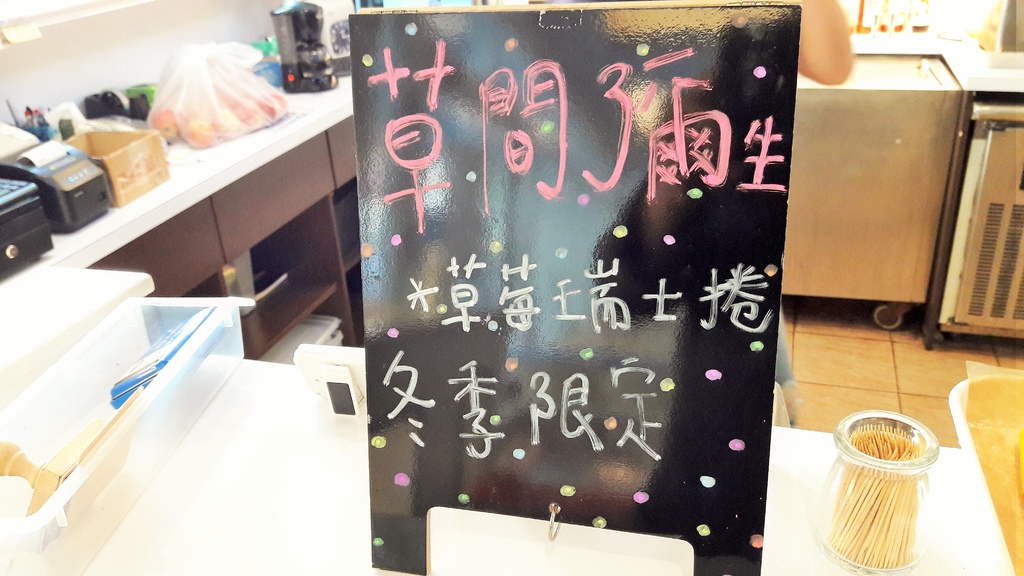 草間彌生
*草莓瑞士捲
冬季限定